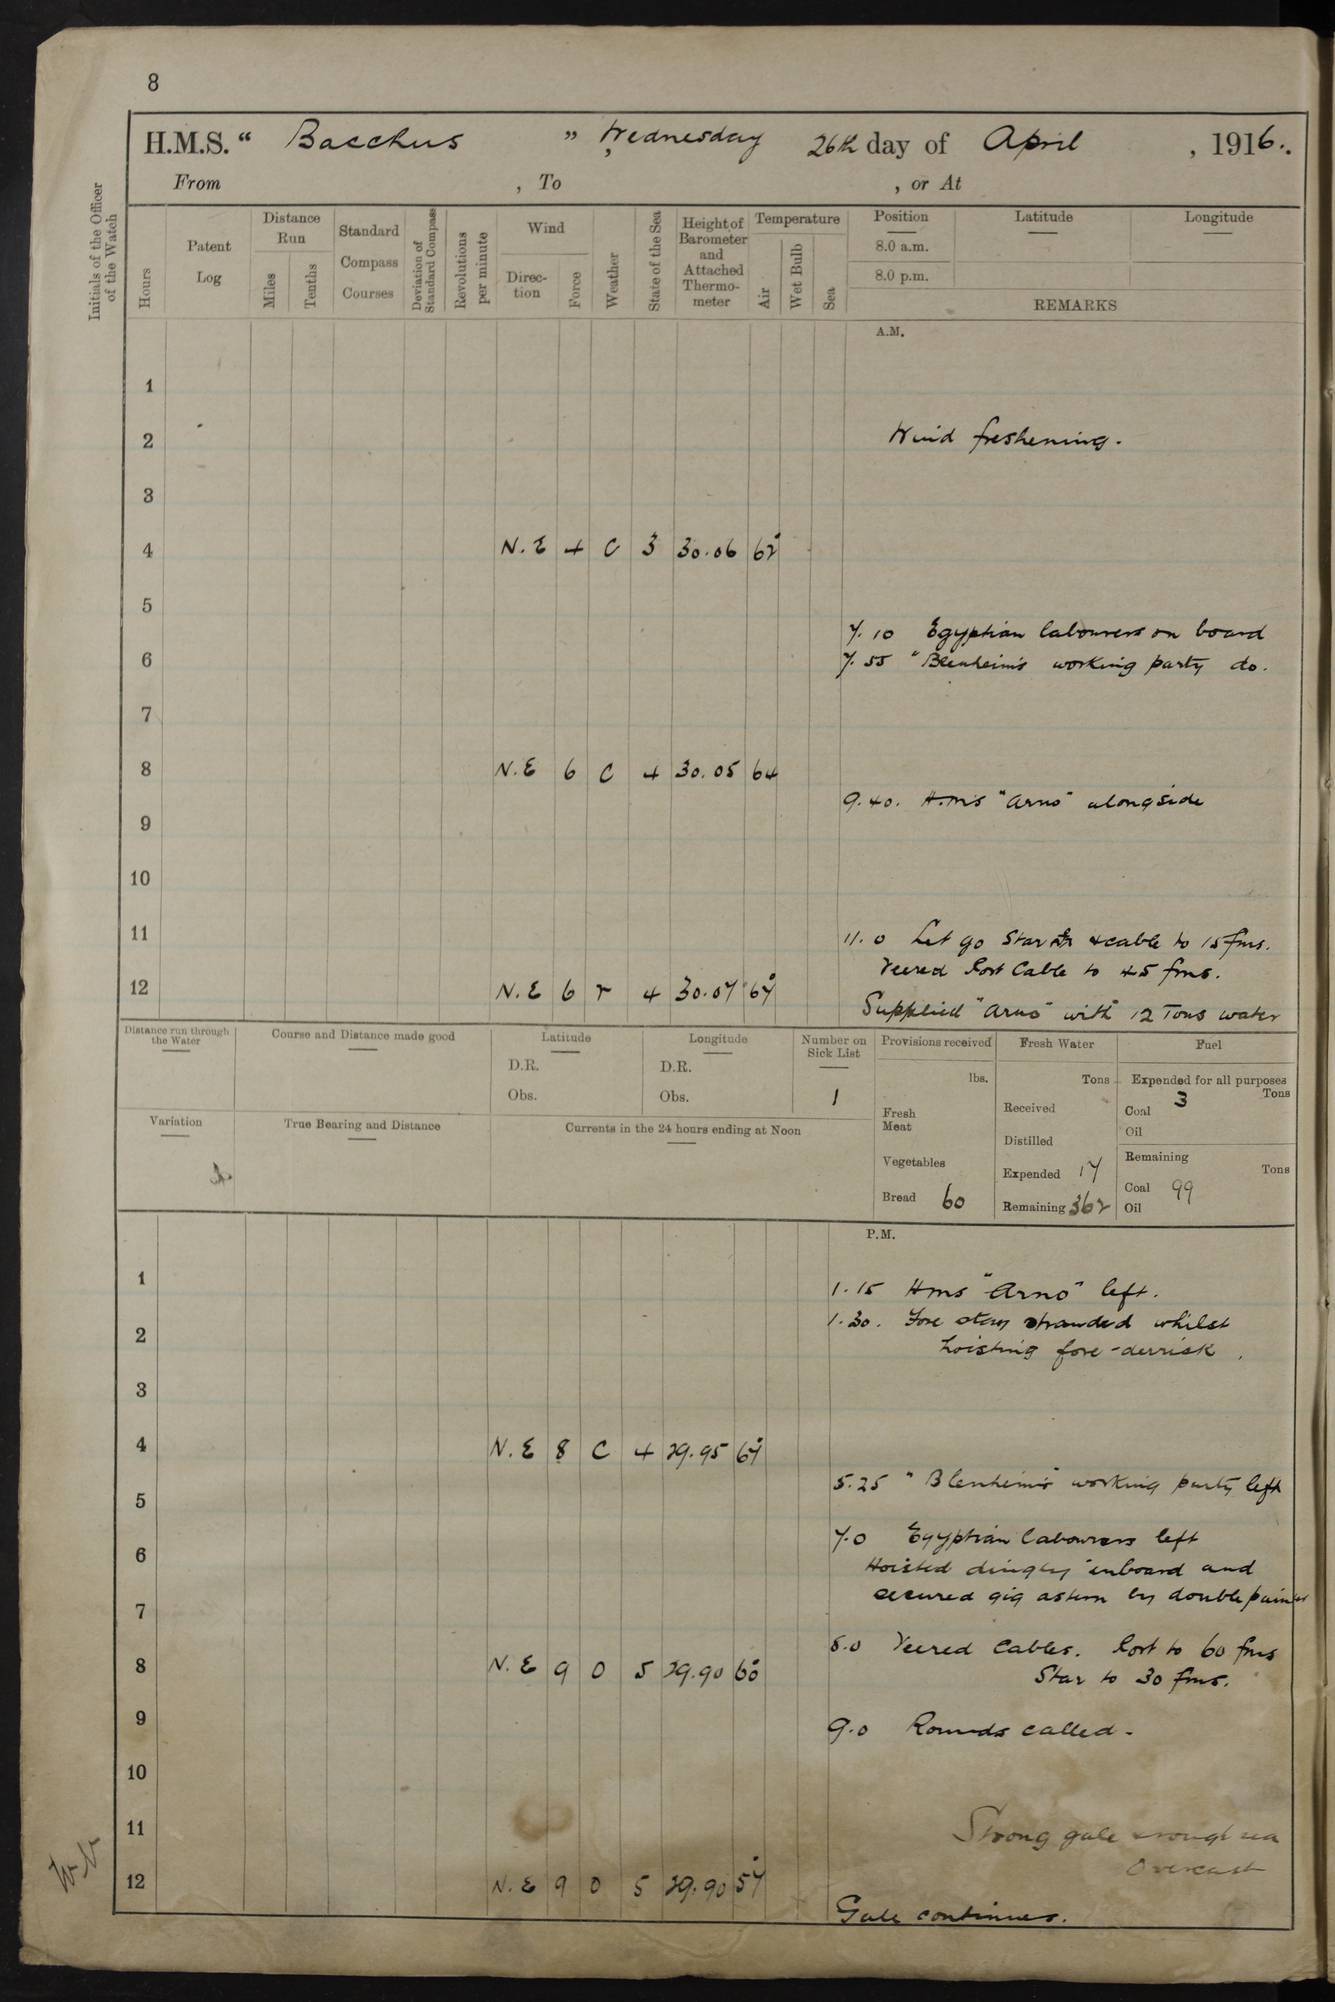 8
H.M.S. “ Bacchus ” Wednesday 26th day of April , 1916.
From , To , or At
Initials of the Officer of the Watch
Hours
Patent Log
Distance Run
Miles
Tenths
Standard Compass Courses
Deviation of Standard Compass
Revolutions per minute
Wind
Direc-tion
Force
Weather
State of the Sea
Height of Barometer and Attached Thermo-meter
Temperature
Air
Wet Bulb
Sea
Position
8.0 a.m.
8.0 p.m.
Latitude
Longitude
REMARKS
A.M.
1
2 Wind freshening.
3
4 N.E 4 C 3 30.06 62°
5
7.10 Egyptian labourers on board
6 7.55 "Blenheim's working party do.
7
8 N.E 6 C 4 30.05 64
9.40. H.M.S "Arno" alongside
9
10
11 11.0 Let go Starbd & cable to 15 fms.
Veered Port Cable to 45 fms.
12 N.E 6 r 4 30.07 67°
Supplied "Arno" with 12 Tons water
Distance run through the Water
Course and Distance made good
Latitude
D.R.
Obs.
Longitude
D.R.
Obs.
Number on Sick List
1
Provisions received
lbs.
Fresh Meat
Vegetables
Bread 60
Fresh Water
Tons
Received
Distilled
Expended 17
Remaining 362
Fuel
Expended for all purposes
Tons
Coal 3
Oil
Remaining
Tons
Coal 99
Oil
Variation
True Bearing and Distance
Currents in the 24 hours ending at Noon
P.M.
1 1.15 Hms "Arno" left.
1.30. Fore stay stranded whilst
2 hoisting fore-derrick.
3
4 N.E 8 C 4 29.95 67°
5.25 "Blenheim's" working party left
5
7.0 Egyptian labourers left
6 Hoisted dinghy inboard and
secured gig astern by double painter
7
8.0 Veered Cables. Port to 60 fms
8 N.E 9 O 5 29.90 60°
Star to 30 fms.
9 9.0 Rounds called.
10
11 Strong gale & rough sea
Overcast
12 N.E 9 O 5 29.90 57°
Gale continues.